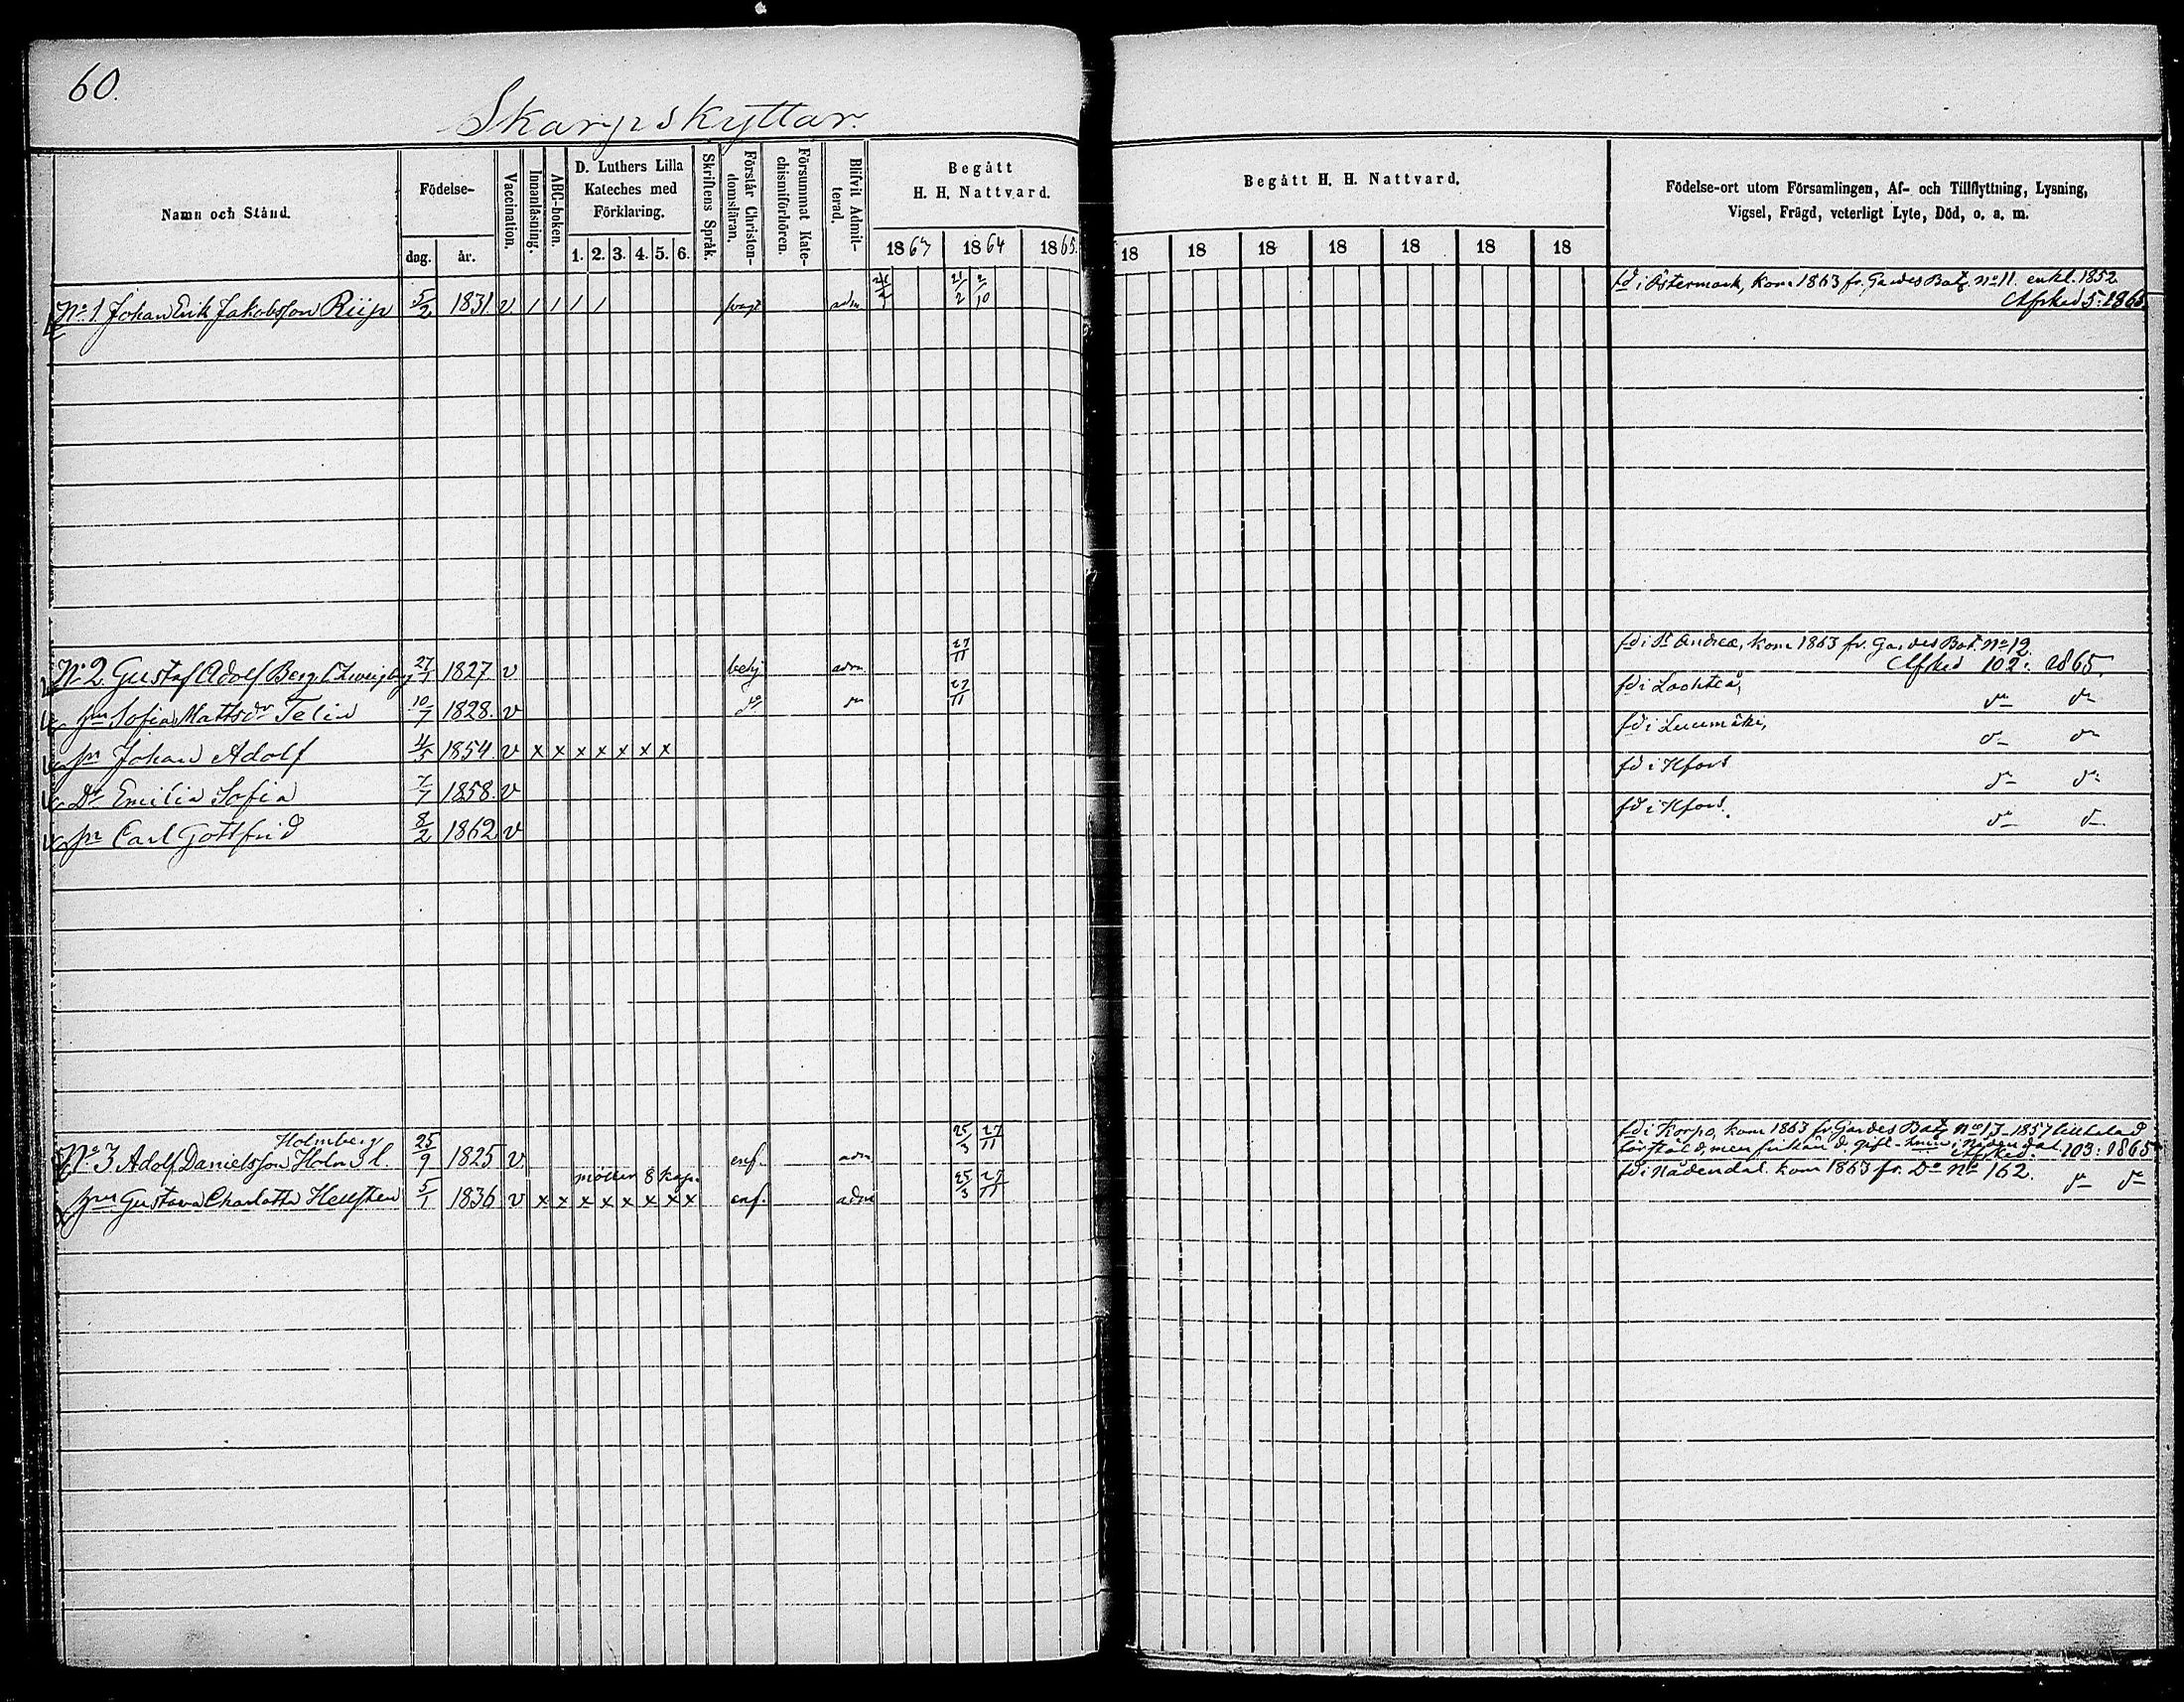 60.
Skarpskyttar.
Namn och Stånd.
Födelse-
dag. år.
Vaccination.
Innanläsning.
ABC-boken.
D. Luthers Lilla
Kateches med
Förklaring.
1. 2. 3. 4. 5. 6.
Skriftens Språk.
Förstår Christen-
domsläran.
Försummat Kate-
chismiförhören.
Blifvit Admit-
terad.
Begått
H. H. Nattvard.
1863 1864 1865.
Begått H. H. Nattvard.
18 18 18 18 18 18 18
Födelse-ort utom Församlingen, Af- och Tillflyttning, Lysning,
Vigsel, Frägd, veterligt Lyte, Död, o. a. m.
No 1. Johan Erik Jakobsson Riip 5/2 1831 v / / / / svagt adm 21/2 2/10
fd i Östermark, kom 1863 fr. Gardes Bat. no 11. enkl. 1852
Afsked 5: 1865
No 2 Gustaf Adolf Berg 27/1 1827 v behj adm 27/11
fd i St Andreæ, kom 1863 fr. Gardes Bat. no 12.
Afsked 102: 1865.
hu Sofia Mattsdr Telin 10/7 1828. v do do 27/11 fd i Lochteå, do do
sn Johan Adolf 4/5 1854. v x x x x x x x fd i Luumäki, do do
Dr Emilia Sofia 7/7 1858. v fd i Hfors do do
sn Carl Gottfrid 8/2 1862 v fd i Hfors. do do
Holmberg
No 3 Adolf Danielsson Holm 25/9 1825 v enf. adm 25/3 27/11
fd i Korpo, kom 1863 fr Gardes Bat no 13. 1857
förstöld, men frikänd. gift i Nådendal.
Afsked. 103: 1865
möller 8 kap.
hu Gustava Charlotta Hellsten 5/1 1836 v x x x x x x x x enf. adm 25/3 27/11
fd i Nådendal. kom 1863 fr. Do No 162. do do